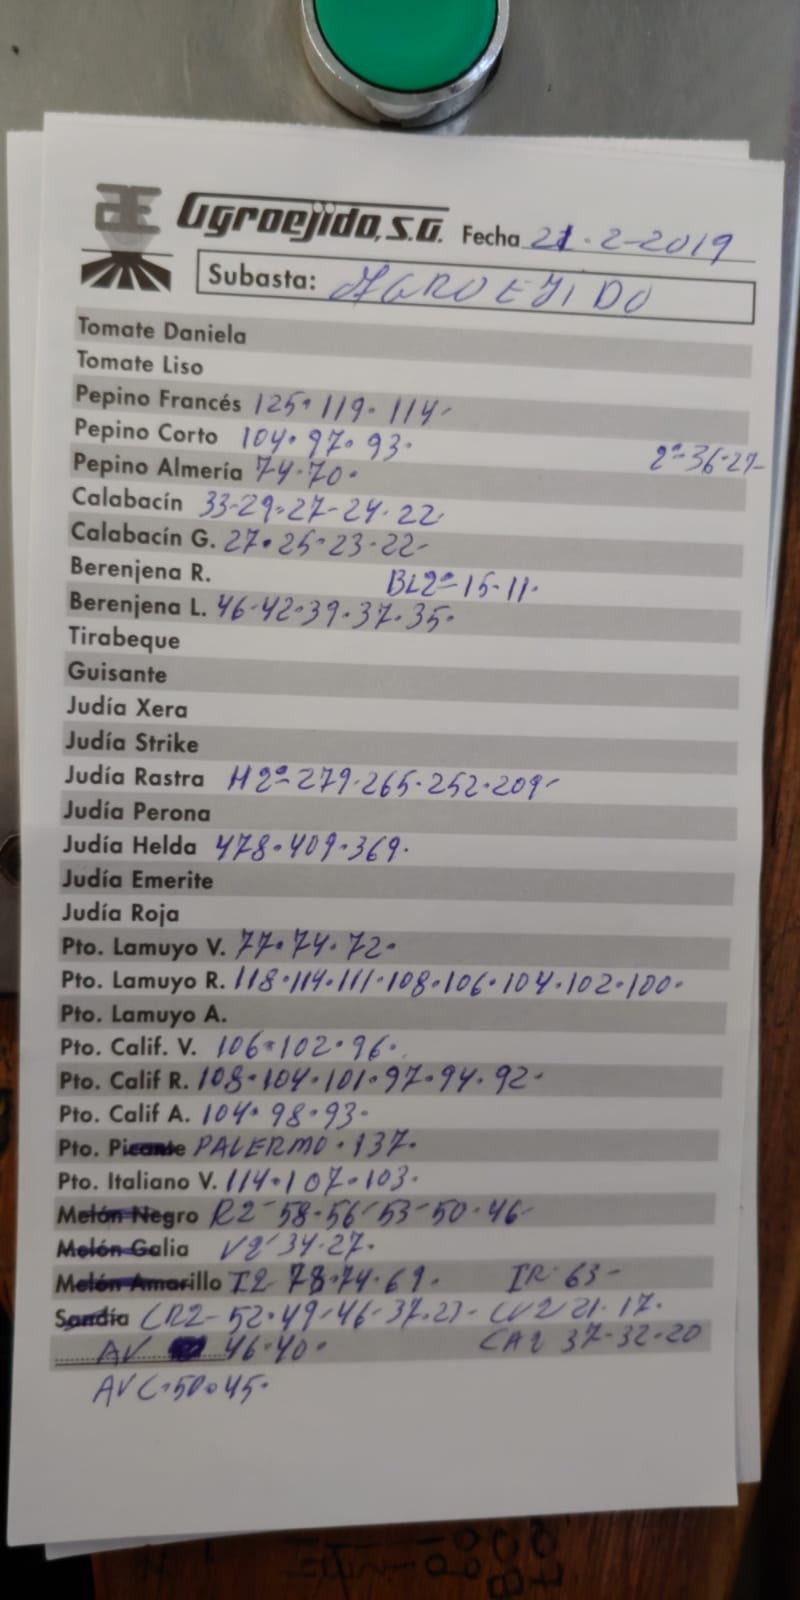 Agroejido, S.A. Fecha 21.2-2019
Subasta: AGROEJIDO
Tomate Daniela
Tomate Liso
Pepino Francés 125.119.114-
Pepino Corto 104.97.93.
2ª-36-27-
Pepino Almería 74.70.
Calabacín 33-29-27-24.22
Calabacín G. 27.25-23-22-
Berenjena R. BL2ª-15-11.
Berenjena L. 46-42-39.37.35.
Tirabeque
Guisante
Judía Xera
Judía Strike
Judía Rastra H2ª-279.265.252.209-
Judía Perona
Judía Helda 478.409.369.
Judía Emerite
Judía Roja
Pto. Lamuyo V. 77.74.72-
Pto. Lamuyo R. 118.114.111.108.106.104.102.100.
Pto. Lamuyo A.
Pto. Calif. V. 106.102.96.
Pto. Calif R. 108.104.101.97.94.92-
Pto. Calif A. 104.98.93-
Pto. Picante PALERMO.137.
Pto. Italiano V. 114.107.103.
Melón Negro R2-58.56-53-50.46-
Melón Galia V2-34.27.
Melón Amarillo I2 78.74.69. IR-63-
Sandía CR2-52.49-46-37.27- CV2 21.17.
AV 46.40. CA2 37-32-20
AVC.50.45.